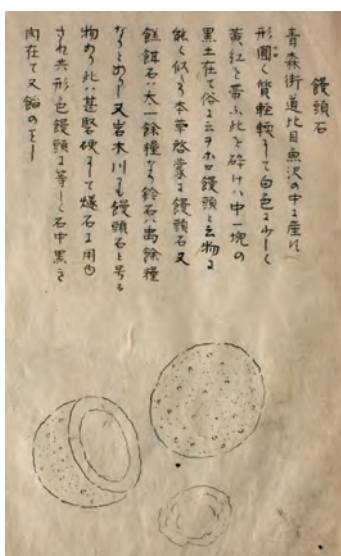 饅頭石
青森街道比目魚沢の中に産す
形圓く質軽輭にして白色に少しく
黄紅を帯ふ此を碎けハ中一塊の
黒土在て俗に云ヲホロ饅頭と云物に
能く似り本草啓蒙に饅頭石又
餻餌石ハ太一餘糧なり鈴石ハ禹餘糧
なりとあり又岩木川にも饅頭石と号る
物あり此ハ甚堅硬にして燧石に用由
され共形色饅頭に等しく石中黒き
肉在て又餡のことし